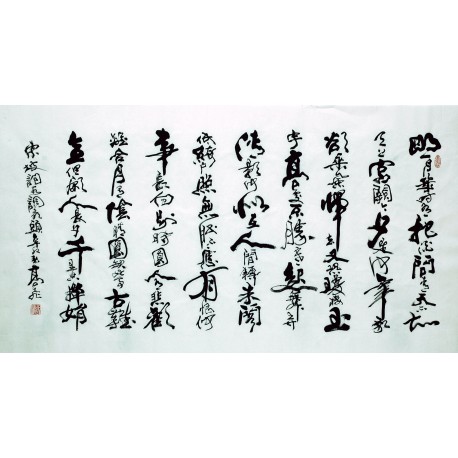 明月幾時有把酒問青天不知
天上宮闕今夕是何年我
欲乘風歸去又恐瓊樓玉
宇高處不勝寒起舞弄
清影何似在人間轉朱閣
低綺戶照無眠不應有恨何
事長向別時圓人有悲歡
離合月有陰晴圓缺此事古難
全但願人長久千里共嬋娟
東坡詞水調歌頭